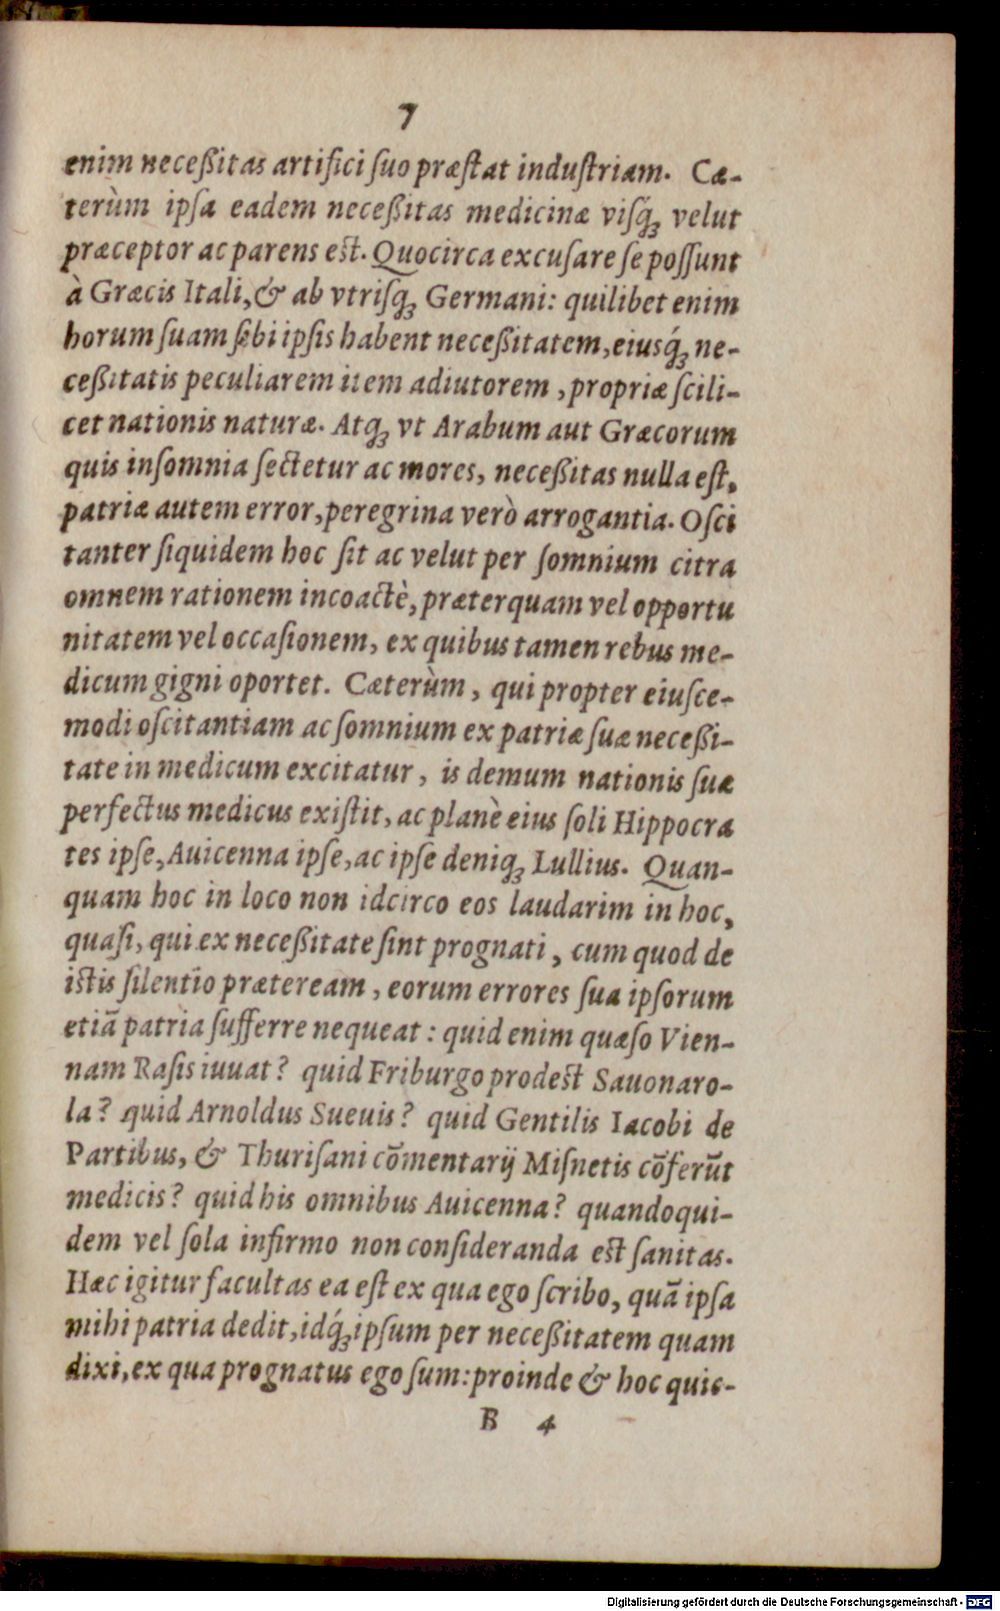 7
enim neceßitas artifici ſuo præſtat induſtriam. Cæ-
terùm ipſa eadem neceßitas medicinæ viſq́ꝫ velut
præceptor ac parens est. Quocirca excuſare ſe poſſunt
à Græcis Itali, & ab vtriſqꝫ Germani: quilibet enim
horum ſuam ſibi ipſis habent neceßitatem, eiusq́ꝫ ne-
ceßitatis peculiarem item adiutorem, propriæ ſcili-
cet nationis naturæ. Atqꝫ vt Arabum aut Græcorum
quis inſomnia ſectetur ac mores, neceßitas nulla eſt,
patriæ autem error, peregrina verò arrogantia. Oſci
tanter ſiquidem hoc ſit ac velut per ſomnium citra
omnem rationem incoactè, præterquam vel opportu
nitatem vel occaſionem, ex quibus tamen rebus me-
dicum gigni oportet. Cæterùm, qui propter eiuſce-
modi oſcitantiam ac ſomnium ex patriæ ſuæ neceßi-
tate in medicum excitatur, is demum nationis ſuæ
perfectus medicus exiſtit, ac planè eius ſoli Hippocra
tes ipſe, Auicenna ipſe, ac ipſe deniqꝫ Lullius. Quan-
quam hoc in loco non idcirco eos laudarim in hoc,
quaſi, qui ex neceßitate ſint prognati, cum quod de
istis ſilentio præteream, eorum errores ſua ipſorum
etiã patria ſufferre nequeat: quid enim quæſo Vien-
nam Raſis iuuat? quid Friburgo prodest Sauonaro-
la? quid Arnoldus Sueuis? quid Gentilis Iacobi de
Partibus, & Thuriſani cõmentarij Miſnetis cõferũt
medicis? quid his omnibus Auicenna? quandoqui-
dem vel ſola infirmo non conſideranda est ſanitas.
Hæc igitur facultas ea eſt ex qua ego ſcribo, quã ipſa
mihi patria dedit, idq́ꝫ ipſum per neceßitatem quam
dixi, ex qua prognatus ego ſum: proinde & hoc quic-
B 4
Digitalisierung gefördert durch die Deutsche Forschungsgemeinschaft - DFG